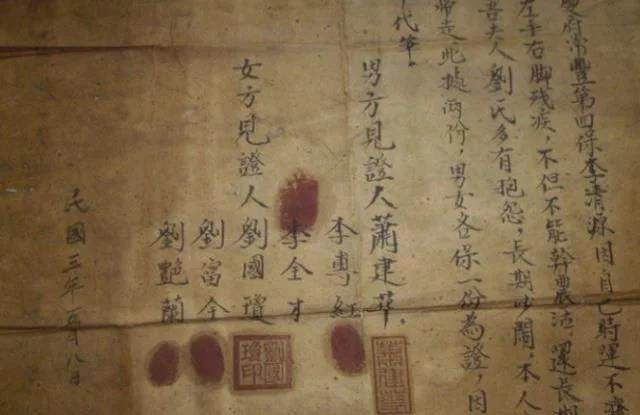 府常豐第四保李清源因自己時運不濟
左手右脚残疾，不但不能幹農活，還長期
吾夫人劉氏多有抱怨，長期吵鬧，本人
走此據两份，男女各保一份為證，因
代筆。
男方見證人蕭建華
李
李全才
女方見證人劉國瓊
劉富全
劉艷蘭
民國三年月八日
劉國瓊印